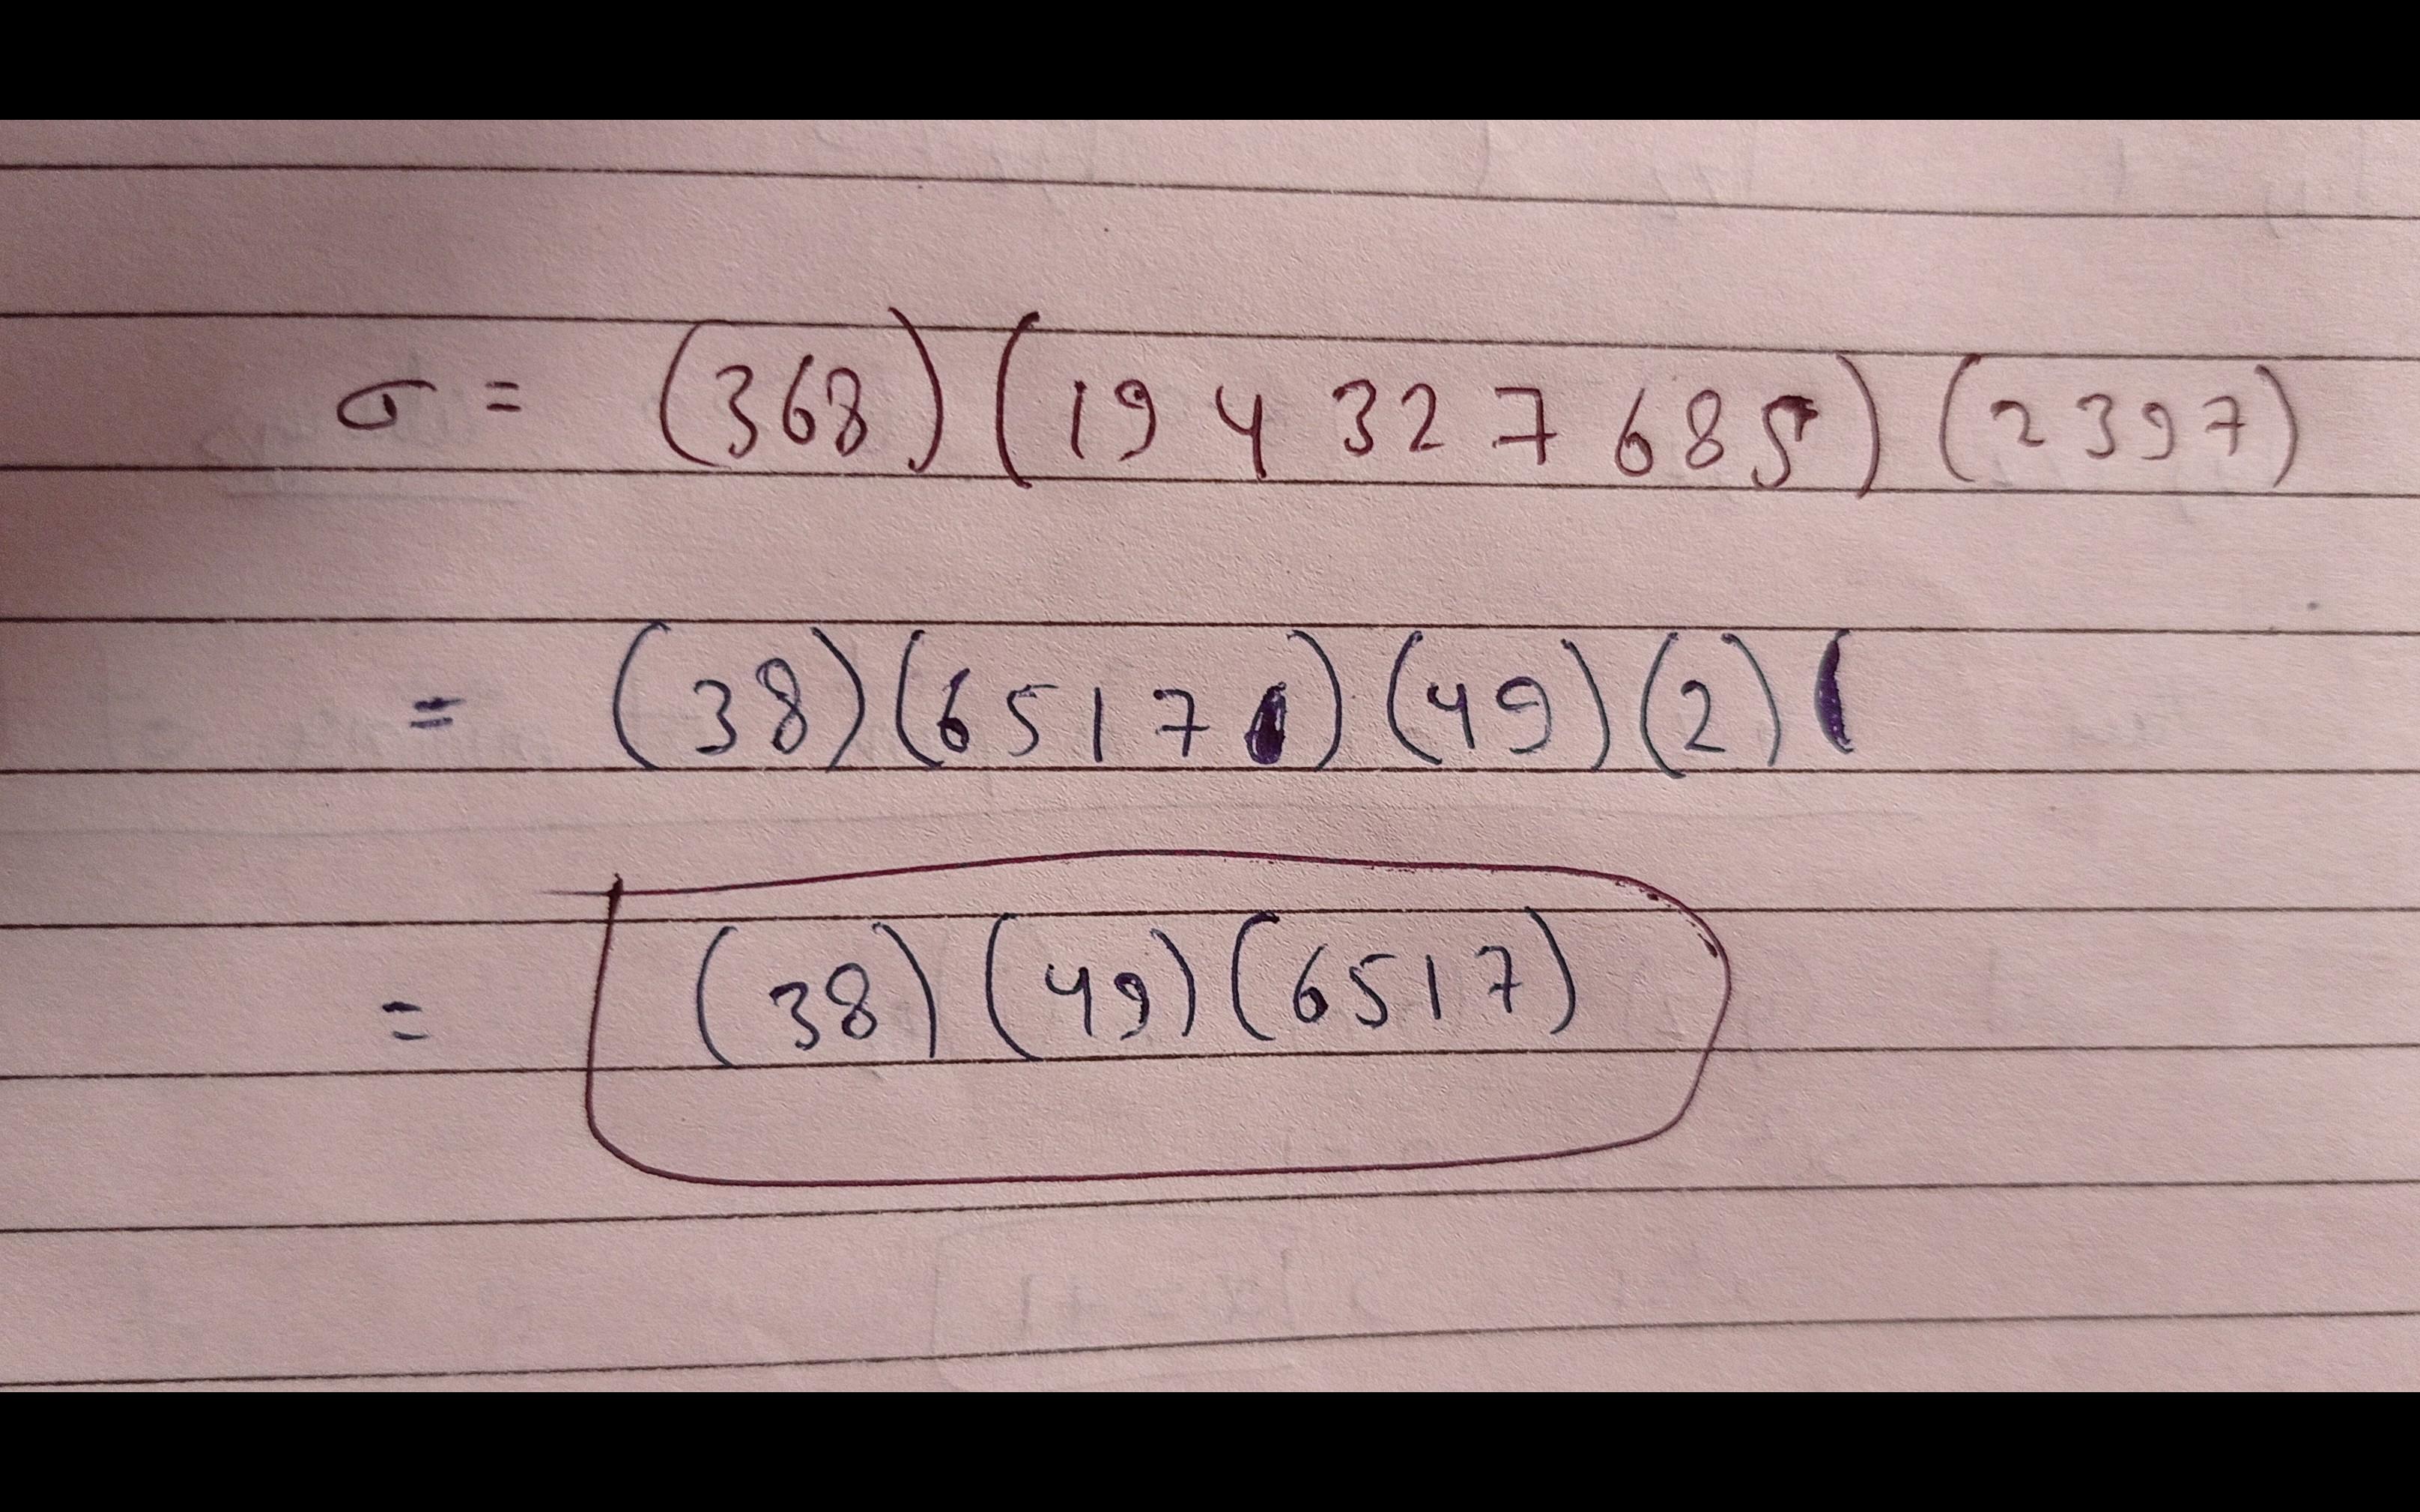 σ = (368) (19 4 32 7 685) (2397)
= (38) (6517) (49) (2)
= (38) (49) (6517)